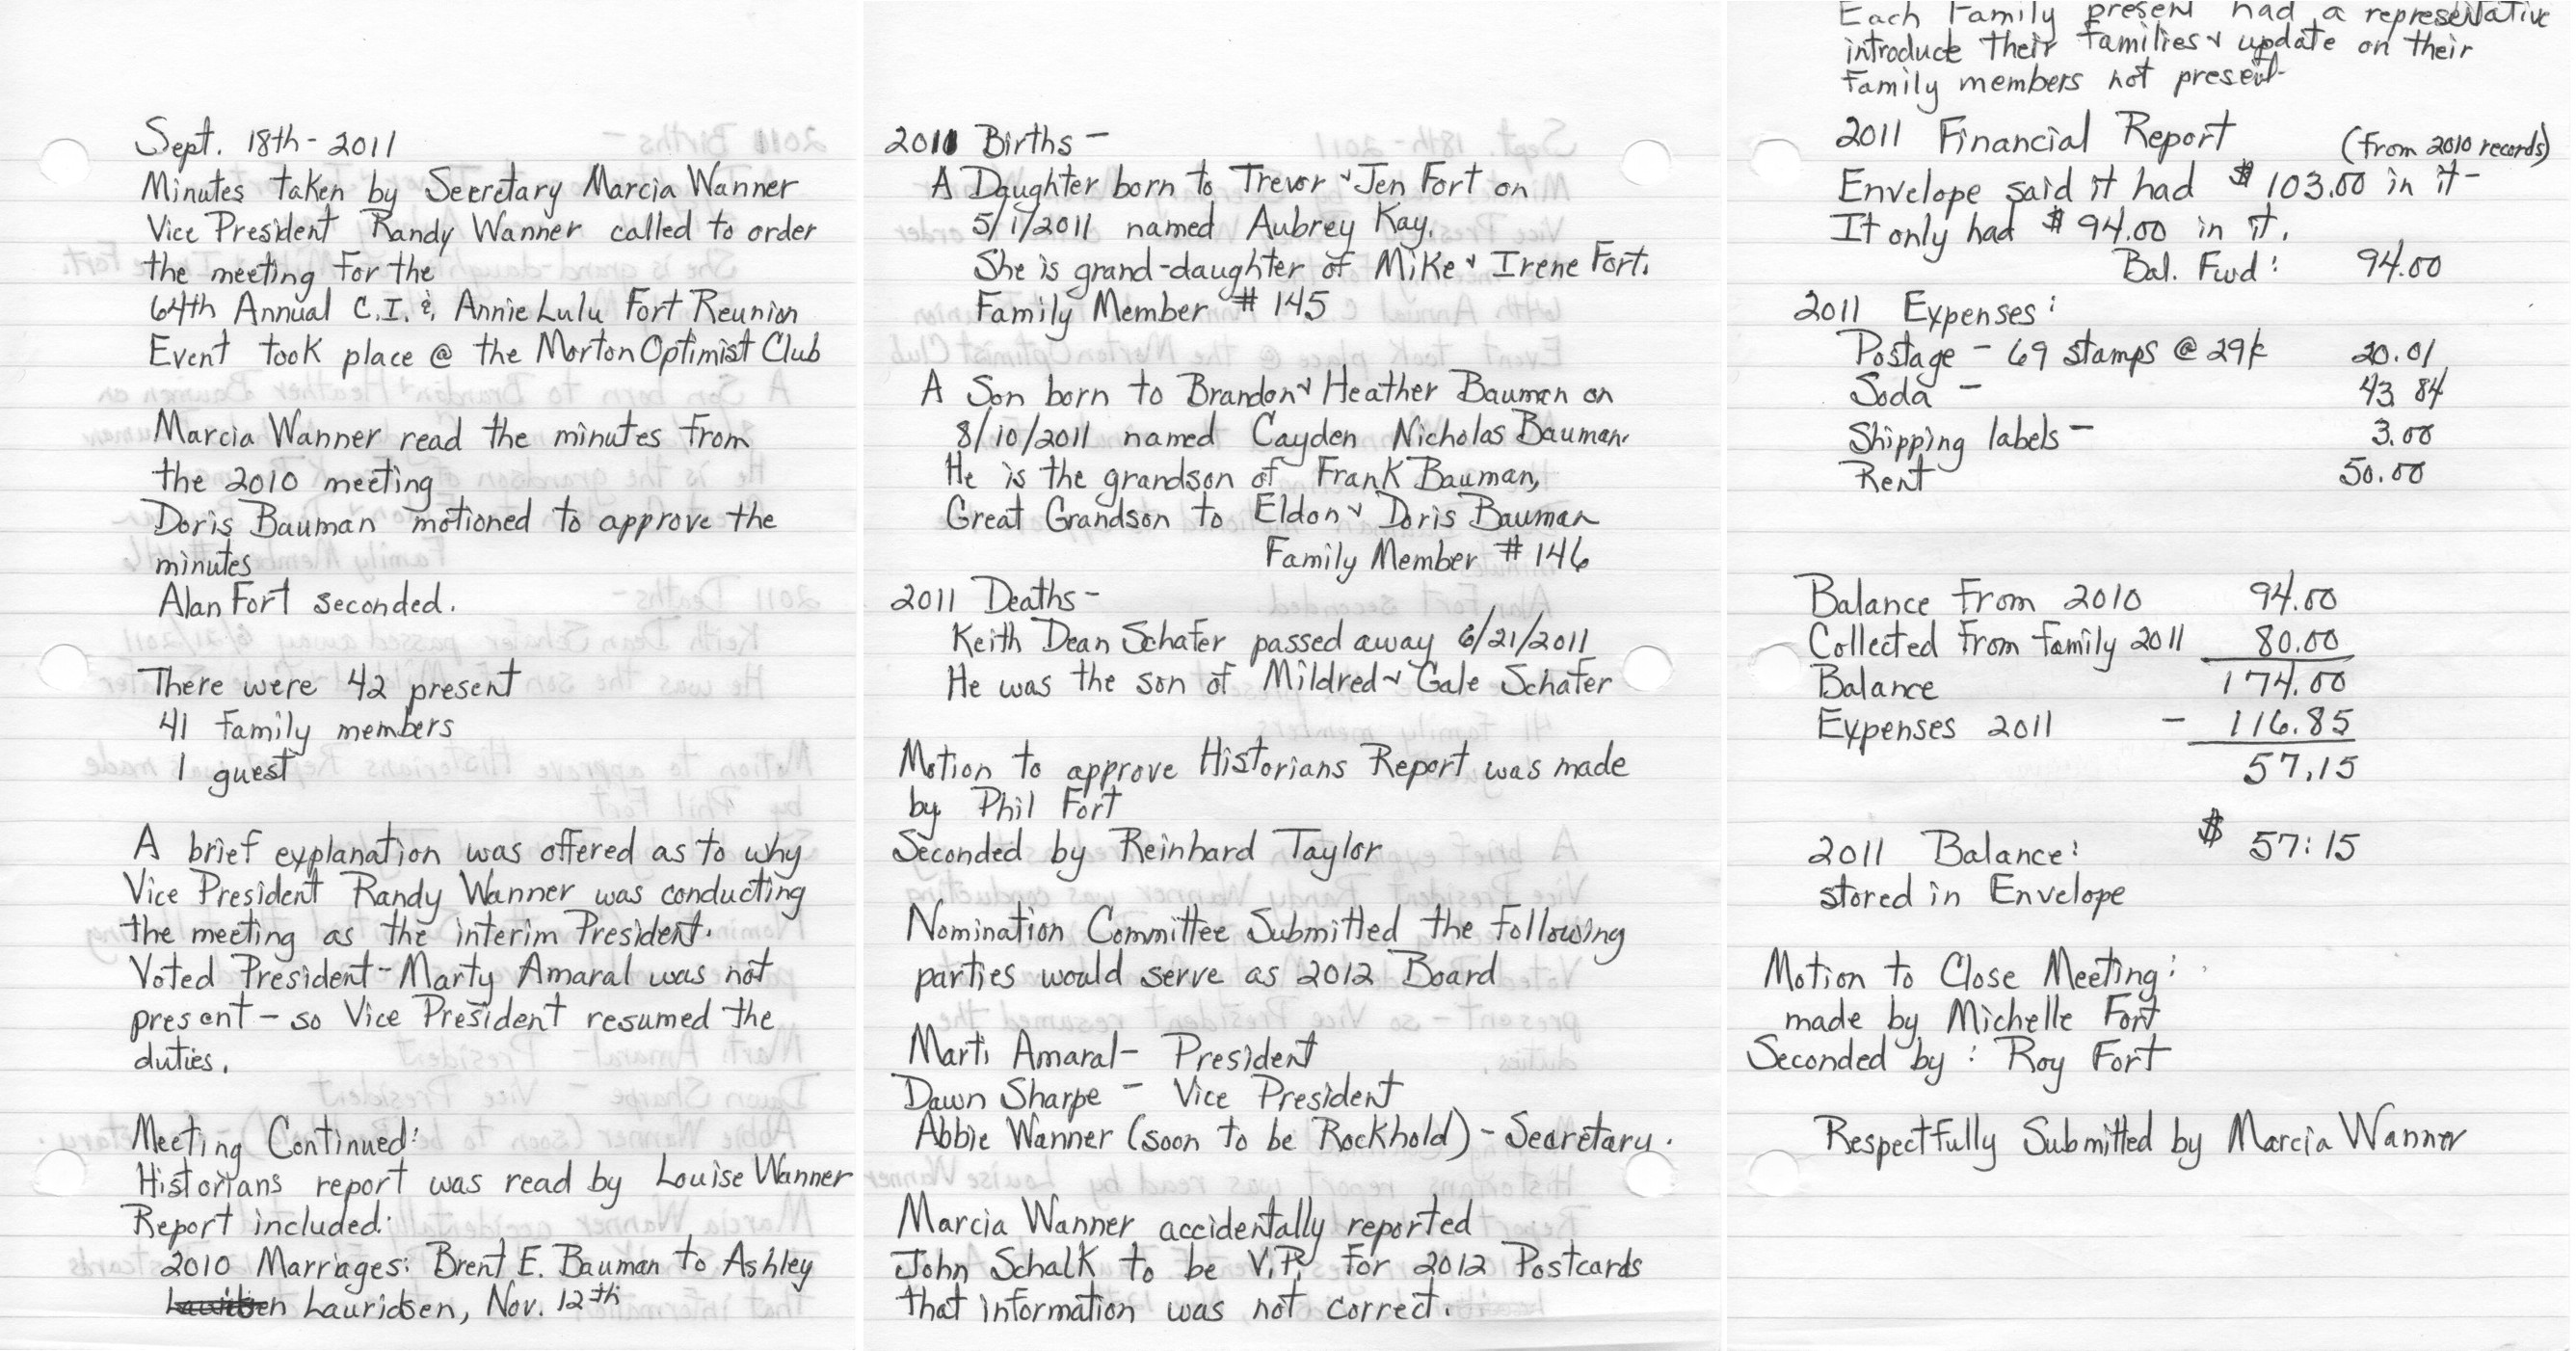 Sept. 18th - 2011
Minutes taken by Secretary Marcia Wanner
Vice President Randy Wanner called to order
the meeting for the
64th Annual C.I. & Annie Lulu Fort Reunion
Event took place @ the Morton Optimist Club
Marcia Wanner read the minutes from
the 2010 meeting
Doris Bauman motioned to approve the
minutes
Alan Fort seconded.
There were 42 present
41 family members
1 guest
A brief explanation was offered as to why
Vice President Randy Wanner was conducting
the meeting as the interim President.
Voted President - Marty Amaral was not
present - so Vice President resumed the
duties.
Meeting Continued:
Historians report was read by Louise Wanner
Report included:
2010 Marriages: Brent E. Bauman to Ashley
Lauridsen, Nov. 12th
2011 Births -
A Daughter born to Trevor & Jen Fort on
5/1/2011 named Aubrey Kay.
She is grand-daughter of Mike & Irene Fort.
Family Member # 145
A Son born to Brandon & Heather Bauman on
8/10/2011 named Cayden Nicholas Bauman.
He is the grandson of Frank Bauman,
Great Grandson to Eldon & Doris Bauman
Family Member # 146
2011 Deaths -
Keith Dean Schafer passed away 6/21/2011
He was the son of Mildred & Gale Schafer
Motion to approve Historians Report was made
by Phil Fort
Seconded by Reinhard Taylor
Nomination Committee Submitted the following
parties would serve as 2012 Board
Marti Amaral - President
Dawn Sharpe - Vice President
Abbie Wanner (soon to be Rockhold) - Secretary.
Marcia Wanner accidentally reported
John Schalk to be V.P. for 2012 Postcards
that information was not correct.
Each Family present had a representative
introduce their families & update on their
family members not present
2011 Financial Report (from 2010 records)
Envelope said it had $ 103.00 in it -
It only had $ 94.00 in it.
Bal. Fwd: 94.00
2011 Expenses:
Postage - 69 stamps @ 29¢ 20.01
Soda - 43.84
Shipping labels - 3.00
Rent 50.00
Balance from 2010 94.00
Collected from family 2011 80.00
Balance 174.00
Expenses 2011 - 116.85
57.15
2011 Balance: $ 57:15
stored in Envelope
Motion to Close Meeting:
made by Michelle Fort
Seconded by: Roy Fort
Respectfully Submitted by Marcia Wanner